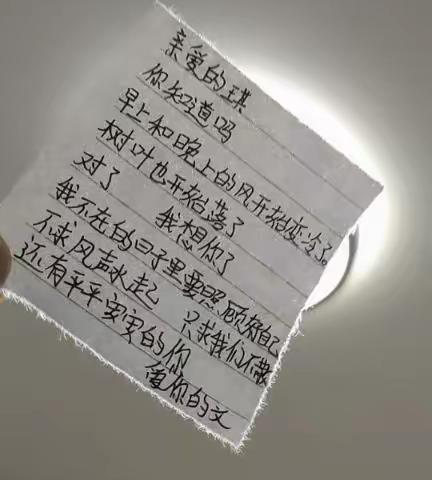 亲爱的琪
你知道吗
早上和晚上的风开始变冷了。
树叶也开始落了
对了 我想你了
我不在的日子里要照顾好自己
不求风声水起 只求我们不散
还有平平安安的你
你的文